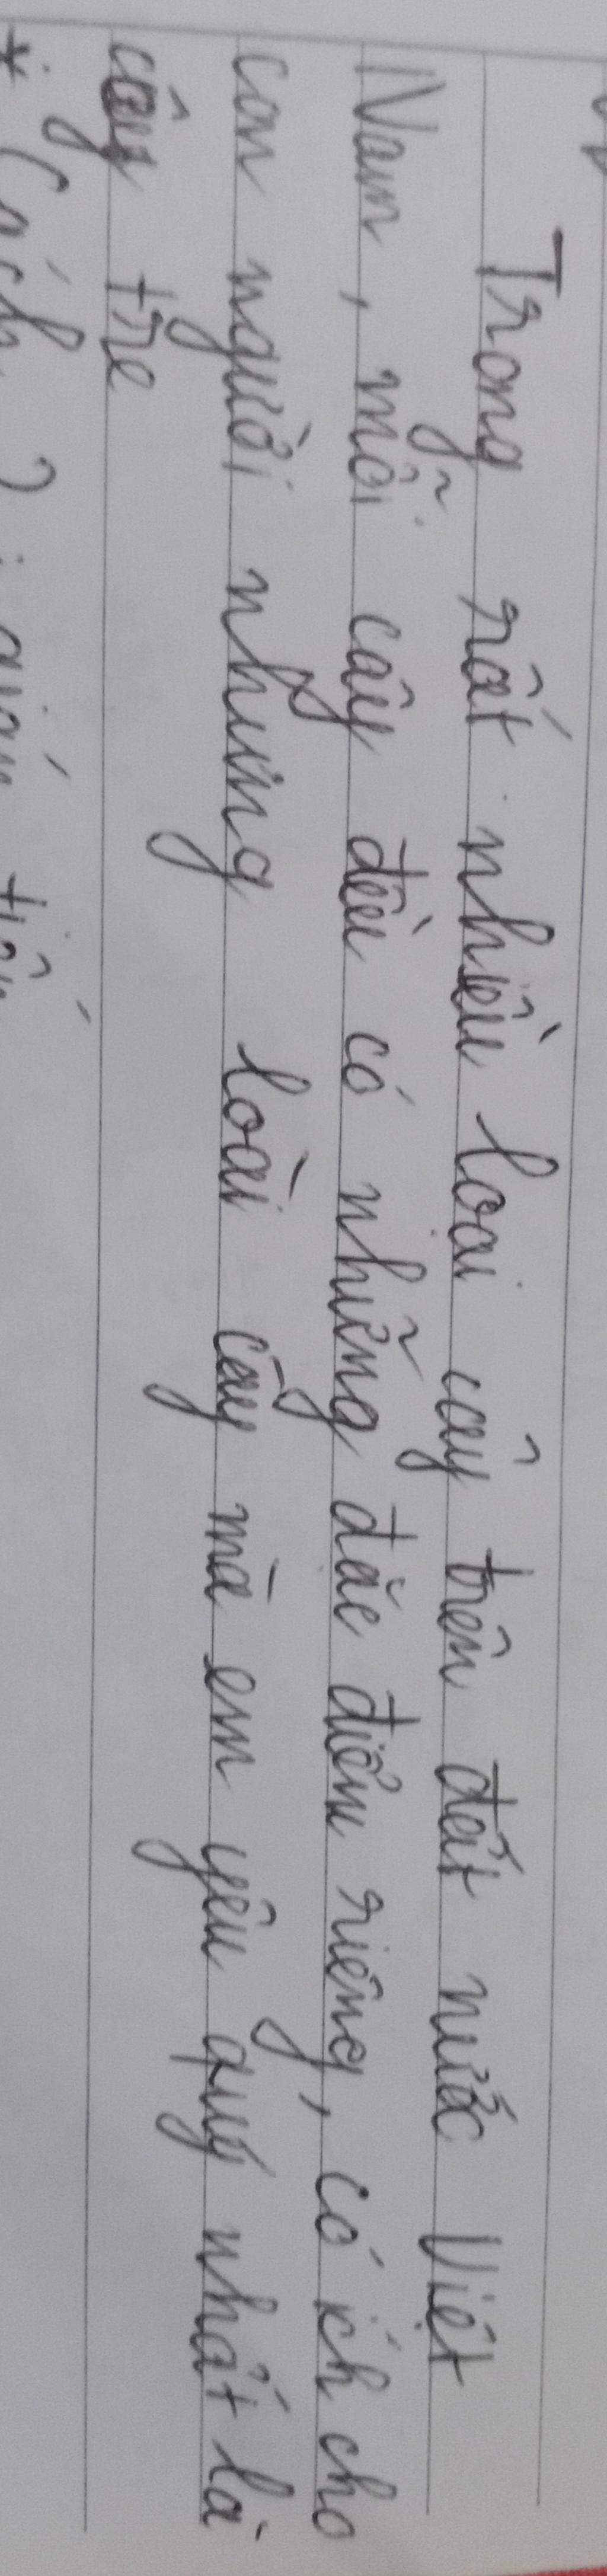 Trong rất nhiều loài cây trên đất nước Việt
Nam, mỗi cây đều có những đặc điểm riêng, có ích cho
con người nhưng loài cây mà em yêu quý nhất là
cây tre
* Cách 2: gián tiếp